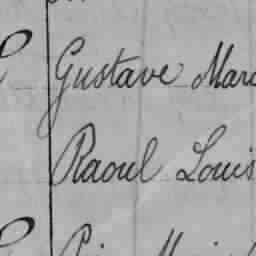 Gustave Marc
Raoul Louis